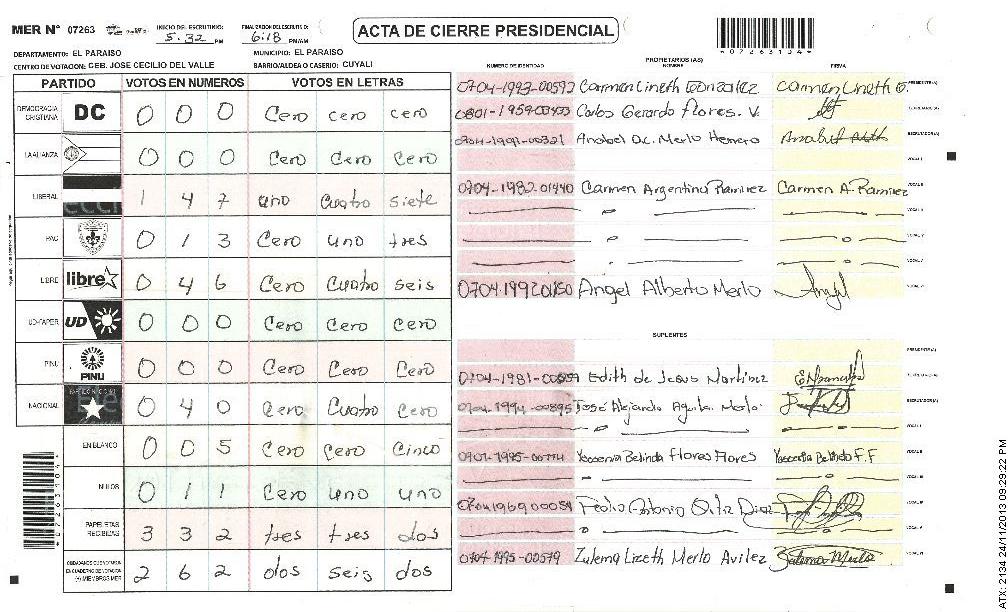 MER N° 07263 INICIO DEL ESCRUTINIO: 5:32 PM FINALIZACION DEL ESCRUTINIO: 6:18 PM/AM ACTA DE CIERRE PRESIDENCIAL
07263134
DEPARTAMENTO: EL PARAISO MUNICIPIO: EL PARAISO
CENTRO DE VOTACION: CEB. JOSE CECILIO DEL VALLE BARRIO/ALDEA O CASERIO: CUYALI
PARTIDO VOTOS EN NUMEROS VOTOS EN LETRAS
DEMOCRACIA CRISTIANA DC 0 0 0 Cero cero cero
LA ALIANZA 0 0 0 Cero Cero Cero
LIBERAL 1 4 7 uno Cuatro siete
PAC 0 1 3 Cero uno tres
LIBRE libre 0 4 6 Cero Cuatro seis
UD-FAPER UD 0 0 0 Cero Cero Cero
PINU PINU 0 0 0 Cero Cero Cero
NACIONAL 0 4 0 Cero Cuatro Cero
EN BLANCO 0 0 5 Cero Cero Cinco
NULOS 0 1 1 Cero uno uno
PAPELETAS RECIBIDAS 3 3 2 tres tres dos
2 6 2 dos seis dos
PROPIETARIOS (AS)
NUMERO DE IDENTIDAD NOMBRE FIRMA
0704-1993-00592 Carmen Lineth Gonzalez Carmen Lineth G. PRESIDENTE(A)
0801-1959-03433 Carlos Gerardo Flores. V. SECRETARIO(A)
0704-1991-00321 Anabel Dc. Merlo Herrera Anabel ESCRUTADOR(A)
VOCAL I
0704-1982-01440 Carmen Argentina Ramirez Carmen A. Ramirez VOCAL II
VOCAL III
VOCAL IV
VOCAL V
0704-1992-01150 Angel Alberto Merlo Angel VOCAL VI
SUPLENTES
PRESIDENTE(A)
0704-1981-00559 Edith de Jesus Martinez SECRETARIO(A)
0704-1994-00895 José Alejandro Aguilar Merlo ESCRUTADOR(A)
VOCAL I
0702-1995-00774 Yessenia Belinda Flores Flores Yessenia Belinda F.F VOCAL II
VOCAL III
0704-1969-00059 Pedro Antonio Ortiz Diaz VOCAL IV
VOCAL V
0704-1995-00579 Zulema Lizeth Merlo Avilez Zulema Merlo VOCAL VI
ATX: 2134 24/11/2013 09:29:22 PM